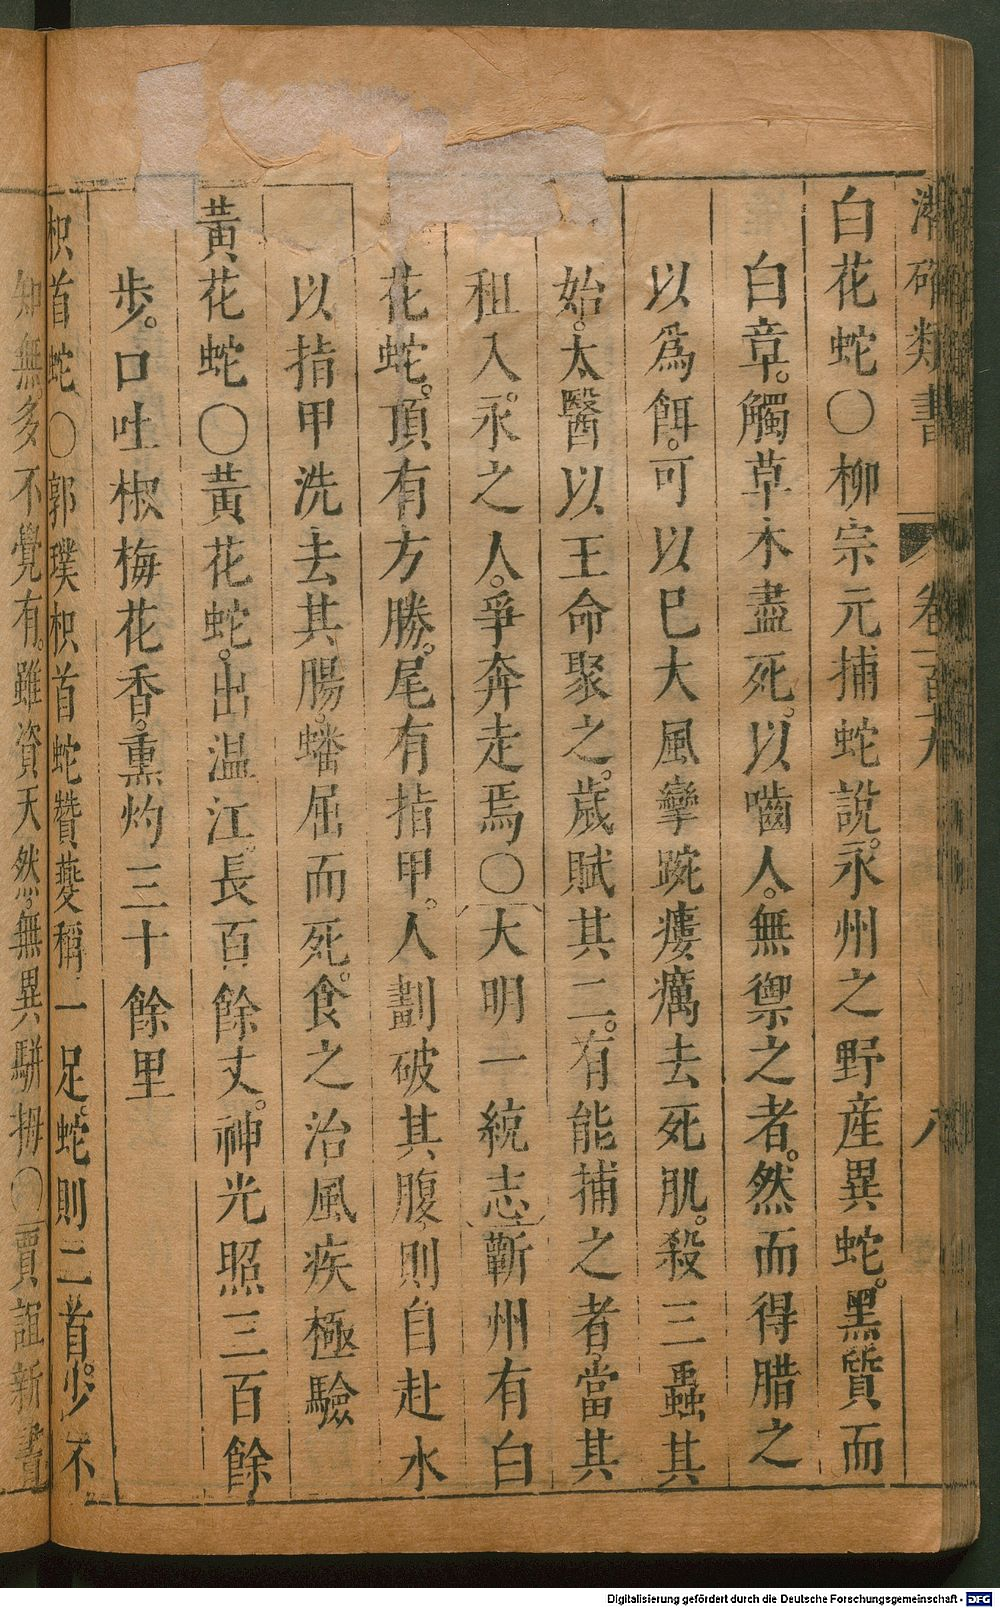 潛確類書 卷一百九 八
白花蛇〇柳宗元捕蛇說。永州之野產異蛇。黑質而
白章。觸草木盡死。以嚙人。無禦之者。然而得腊之
以爲餌。可以已大風攣踠瘻癘去死肌。殺三蟲其
始。太醫以王命聚之。歲賦其二。有能捕之者。當其
租入。永之人。爭奔走焉〇大明一統志蘄州有白
花蛇。頂有方勝。尾有指甲。人劃破其腹。則自赴水
以指甲洗去其腸。蟠屈而死。食之治風疾極驗
黃花蛇〇黃花蛇。出温江。長百餘丈。神光照三百餘
步。口吐椒梅花香。熏灼三十餘里
枳首蛇〇郭璞枳首蛇贊夔稱一足。蛇則二首。少不
知無。多不覺有。雖資天然。無異駢拇〇賈誼新書
Digitalisierung gefördert durch die Deutsche Forschungsgemeinschaft - DFG